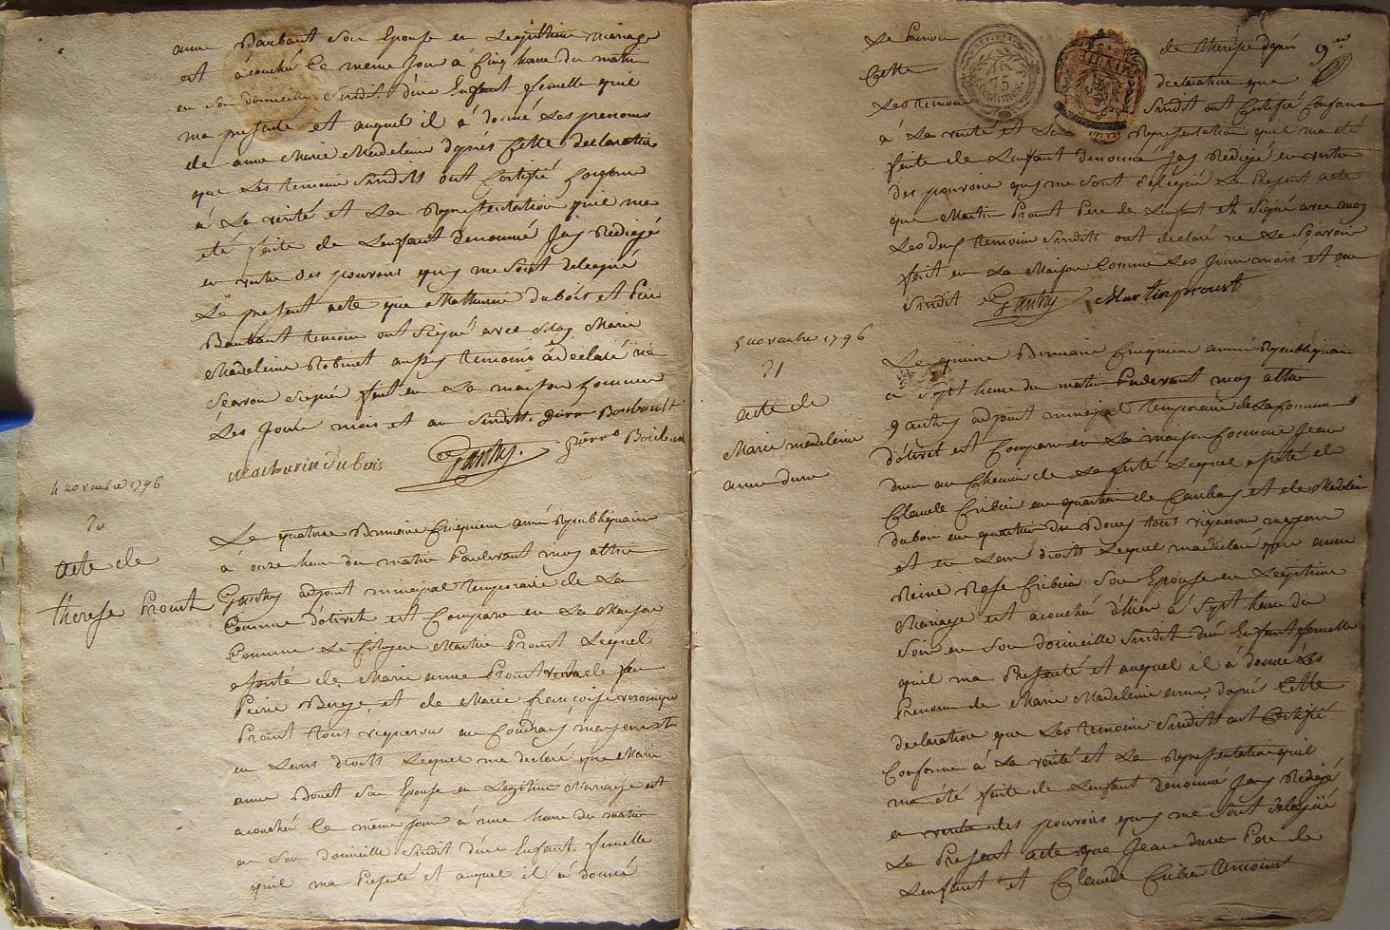 anne Barbant son Epouse en Legittime mariage
est acouché Ce meme Jour à Cinq heure du matin
en son domicille Susdit d'une Enfant femelle quil
ma presenté et auquel il à donné Les prenoms
de anne Marie Madeleine dapres Cette declaration
que Les temoins Susdits ont Certifié Conforme
à La verité et La Representation quil ma
eté faite de Lenfant denommé Jay Rédigé
en vertu des pouvoirs quy me Sont delegué
Le present acte que Mathurin dubois et
temoin ont Signé avec Moy Marie
Madeleine Robinet aussy temoins à declaré ne
Scavoir Signé fait en La maison Commune
Les Jour mois et an Susdit.
mathurin dubois Gautry.
4 novembre 1796
70
acte de
therese Prout
Le quatorze Brumaire Cinquieme anné Republiquaine
à onze heure du matin Pardevant moy
Gautry adjoint municipal Temporaire de La
Commune d'olivet est Comparu en La Maison
Commune Le Citoyen Martin Prout Lequel
assisté de Marie anne Prout veuve de feu
Pierre et de Marie francoise veronique
Prout tous vigneron au Coudray mageurs et
en Leurs droits Lequel me declaré que Marie
anne Son Epouse en Legitime Mariage est
acouché Ce même Jour à une heure du matin
en Son domicille Susdit d'une Enfant femelle
quil ma Presenté et auquel il à donné
Le Prenom de therese dapres 9
Cette declaration que
Les temoins Susdit ont Certifié Conforme
à La verité et La Representation quil ma été
faite de Lenfant denommé Jay Rédigé en vertu
des pouvoirs quy me Sont délégué Le Present acte
que Martin Prout Pere de Lenfant et Signé avec moy
Les deux temoins Susdits ont declaré ne Le Scavoir
fait en La Maison Commune Les Jour mois et an
Susdit Gautry Martin prout
5 novembre 1796
71
acte de
Marie madeleine
anne dure
Le quinze Brumaire Cinquieme anné Republiquaine
à Sept heure du matin Pardevant moy
Gautry adjoint municipal Temporaire de La Commune
d'olivet est Comparu en La maison Commune Jean
dure au Chemin de La ferté Lequel assisté de
Claude Cribier au quartier de et de Madelein
dubois au quartier du Bourg tous vigneron mageurs
et en Leurs droits Lequel ma declaré que anne
Reine Rose Cribier Son Epouse en Legitime
Mariage est acouché d'hier à Sept heure du
Soir en Son domicille Susdit d'une Enfant femelle
quil ma Presenté et auquel il à donné Les
Prenoms de Marie Madeleine anne dapres Cette
declaration que Les temoins Susdits ont Certifié
Conforme à La verité et La Representation quil
ma été faite de Lenfant denommé Jay Rédigé
en vertu des pouvoirs quy me Sont delegué
Le Present acte que Jean dure Pere de
Lenfant et Claude Cribier temoins